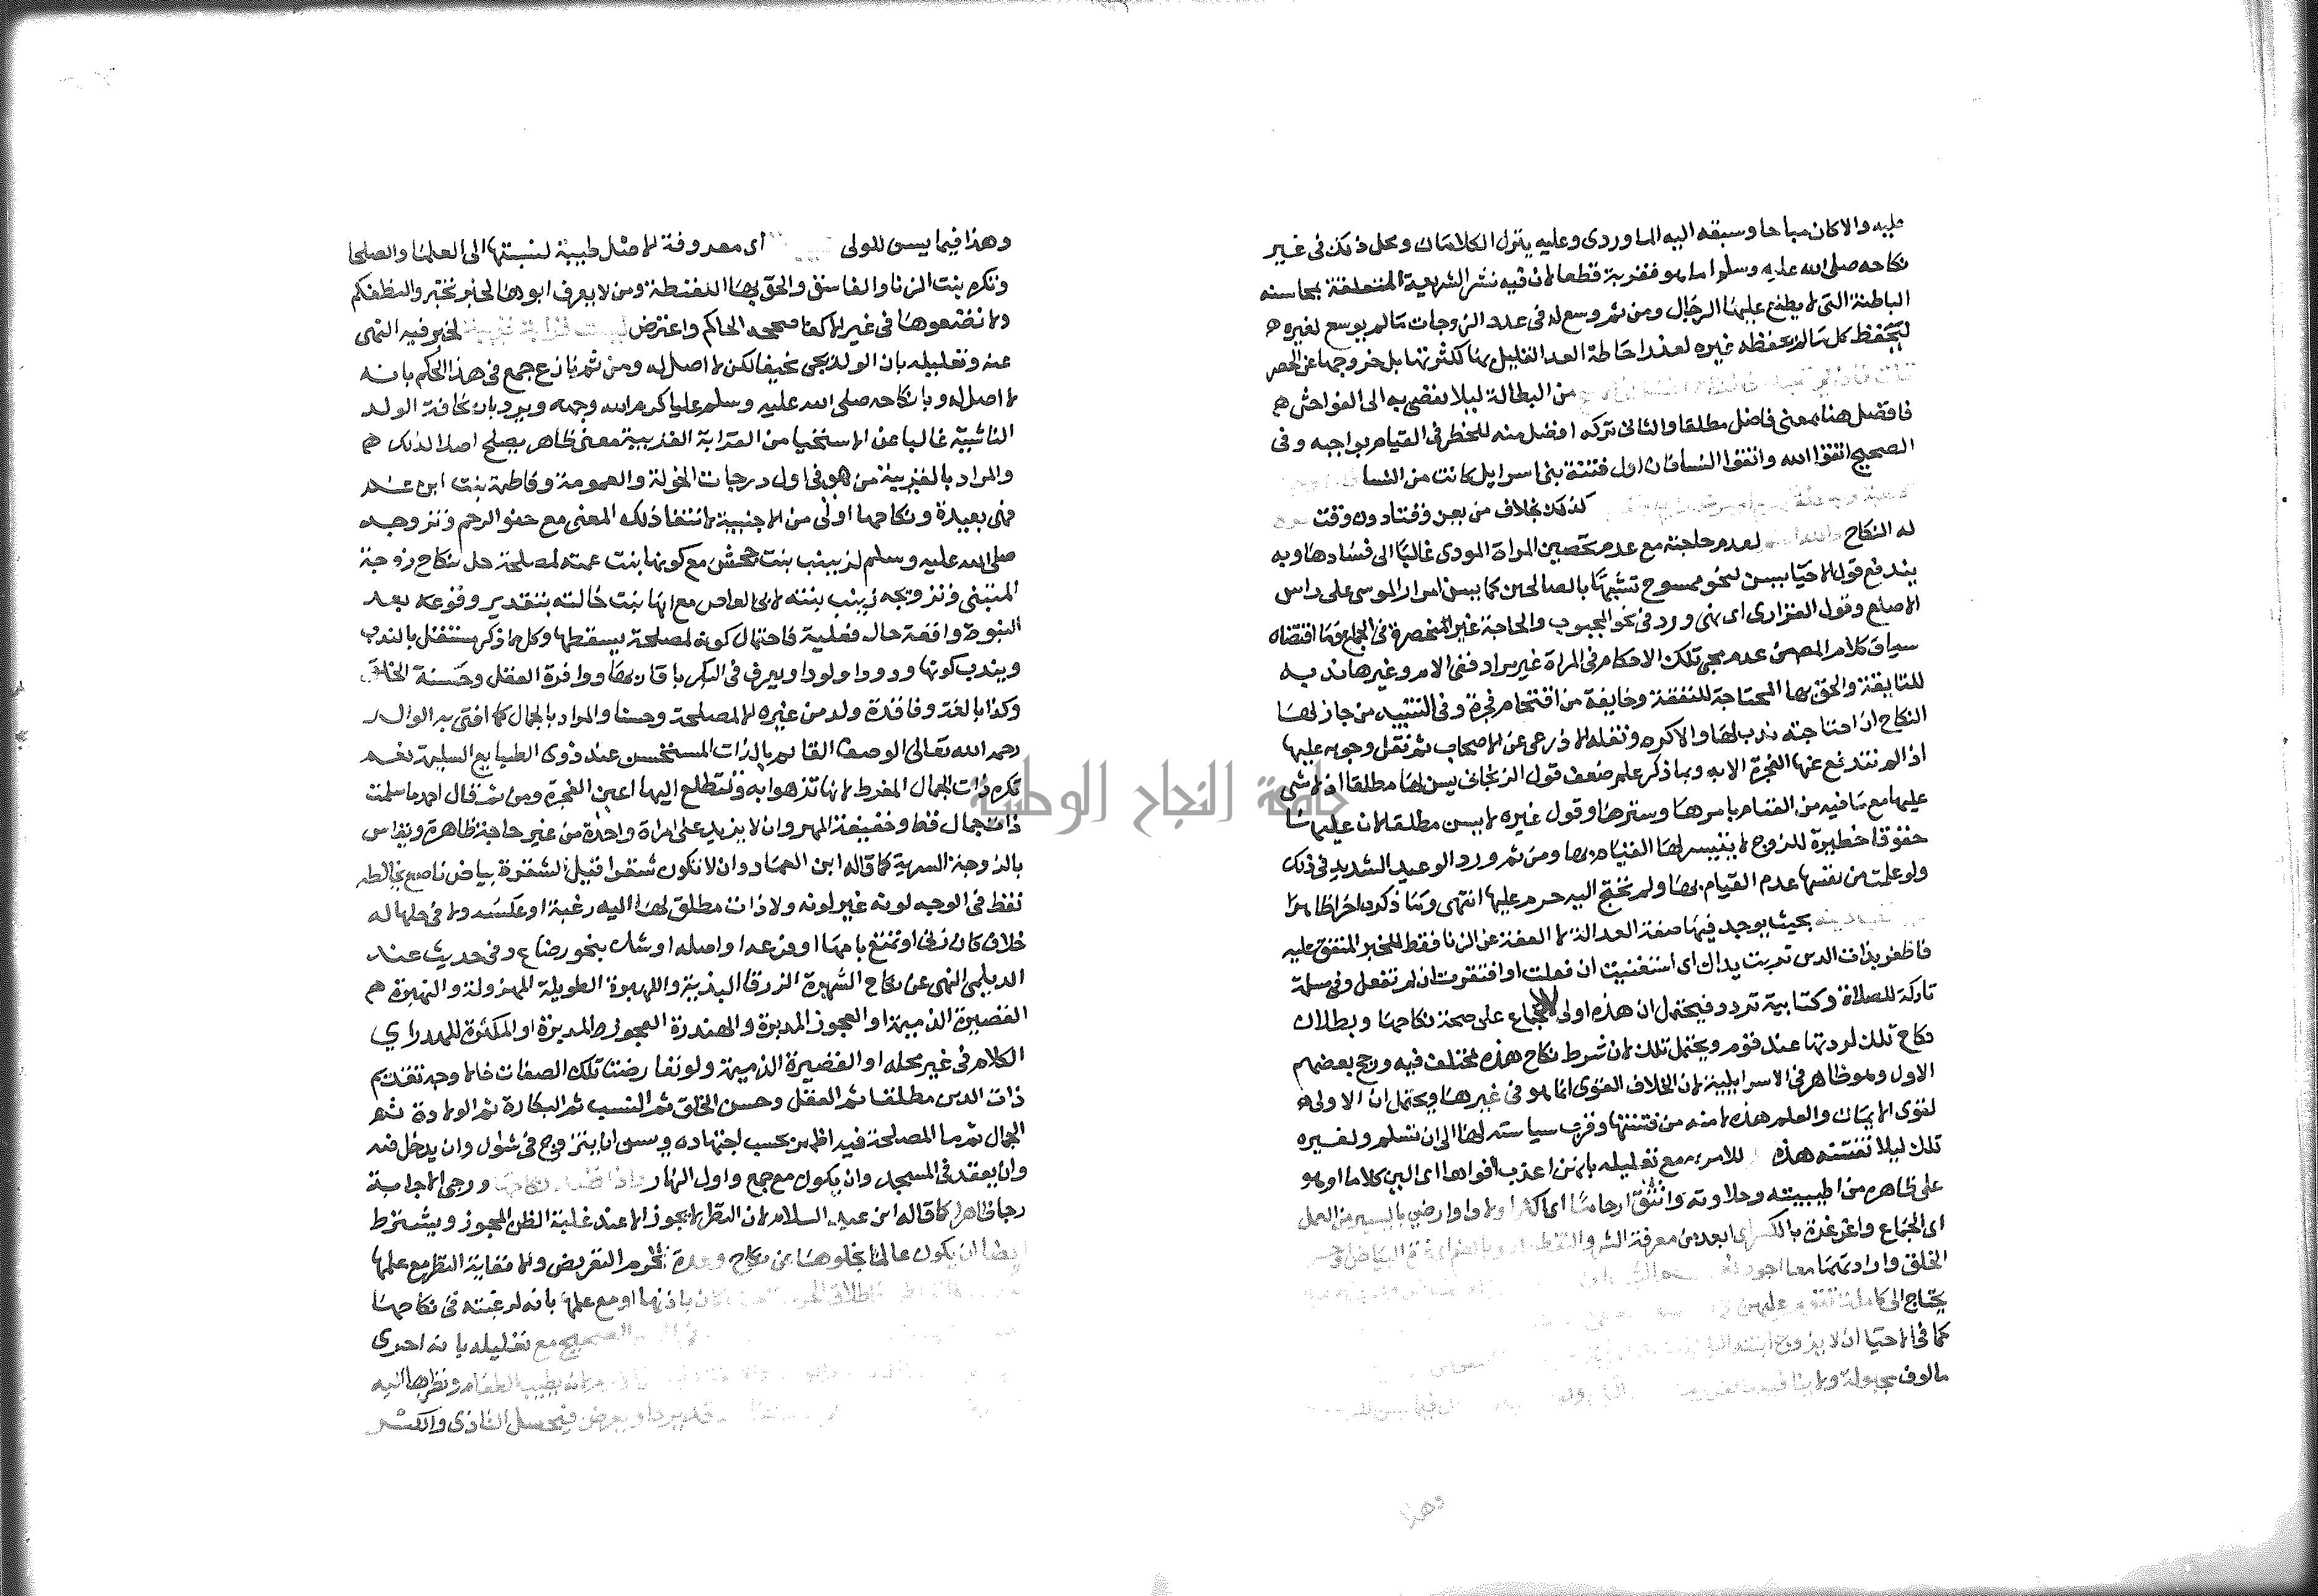 عليه والا كان مباحا وسبقه اليه الماوردى وعليه ينزل الكلامان ومحل ذلك فى غير
نكاحه صلى الله عليه وسلم اما هو فقربة قطعا لان فيه نشر الشريعة المتعلقة بمحاسنه
الباطنة التى لا يطلع عليها الرجال ومن ثم وسع له فى عدد الزوجات مالم يوسع لغيره
ليحفظ كل مالم يحفظه غيره لعذر احاطة العدد القليل بها لكثرتها بل خروجها عن الحصر
من البطالة ليلا يفضى به الى الفواحش
فافضل هنا بمعنى فاضل مطلقا والثانى تركه افضل منه للخطر فى القيام بواجبه وفى
الصحيح اتقوا الله واتقوا النسا فان اول فتنة بنى اسرايل كانت من النسا
كذلك بخلاف من يعن وقتا دون وقت
له النكاح لعدم حاجته مع عدم تحصين المراة المودى غالبا الى فسادها وبه
يندفع قول الاحيا يسن لنحو ممسوح تشبها بالصالحين كما يسن امرار الموسى على راس
الاصلع وقول الفزارى اى نهى ورد فى نحو المجبوب والحاجة غير منحصرة فى الجماع وما اقتضاه
سياق كلام المص من عدم مجى تلك الاحكام فى المراة غير مراد ففى الام وغيرها ندبه
للتايقة والحق بها المحتاجة للنفقة وخايفة من اقتحام فجرة وفى التنبيه من جاز لها
النكاح ان احتاجته ندب لها والا كره ونقله الاذرعى عن الاصحاب ثم نقل وجوبه عليها
اذا لم تندفع عنها الفجرة الا به وبما ذكر علم ضعف قول الزنجانى يسن لها مطلقا اذ لا شى
عليها مع ما فيه من القيام بامرها وسترها وقول غيره لا يسن مطلقا لان عليها
حقوقا خطيرة للزوج لا يتيسر لها القيام بها ومن ثم ورد الوعيد الشديد فى ذلك
ولو علمت من نفسها عدم القيام بها ولم تحتج اليه حرم عليها انتهى وما ذكره اخرا ظاهر
بحيث يوجد فيها صفة العدالة لا العفة عن الزنا فقط للخبر المتفق عليه
فاظفر بذات الدين تربت يداك اى استغنيت ان فعلت او افتقرت ان لم تفعل وفى مسلمة
تاركة للصلاة وكتابية تردد فيحتمل ان هذه اولى للاجماع على صحة نكاحها وبطلان
نكاح تلك لردتها عند قوم ويحتمل تلك لان شرط نكاح هذه مختلف فيه ورجح بعضهم
الاول وهو ظاهر فى الاسرايلية لان الخلاف القوى انما هو فى غيرها ويحتمل ان الاولى
لقوى الايمان والعلم هذه لامنه من فتنتها وقرب سياسته لها الى ان تسلم ولغيره
تلك ليلا تفتنه هذه للامر به مع تعليله بانهن اعذب افواها اى الين كلاما او هو
على ظاهره من اطيبيته وحلاوته وانتق ارحاما اى اكثر اولادا وارضى باليسير من العمل
اى الجماع واغر غرة بالكسر اى ابعد من معرفة الشر والتفطن
الخلق وارادتهما معا اجود
يحتاج الى كاملة تقوم عليهن
كما فى الاحيا ان لا يزوج ابنته
مالوف مجبولة ولا ينافيه
وهذا
وهذا فيما يسن للولى اى معروفة الاصل طيبة لنسبتها الى العلما والصلحا
وتكره بنت الزنا والفاسق والحق بها اللقيطة ومن لا يعرف ابوها لخبر تخيروا لنطفكم
ولا تضعوها فى غير الاكفا صححه الحاكم واعترض لخبر فيه النهى
عنه وتعليله بان الولد يجى نحيفا لكن لا اصل له ومن ثم نازع جمع فى هذا الحكم بانه
لا اصل له وبانكاحه صلى الله عليه وسلم عليا كرم الله وجهه ويرد بان نحافة الولد
الناشية غالبا عن الاستحيا من القرابة القريبة معنى ظاهر يصلح اصلا لذلك
والمراد بالقريبة من هو فى اول درجات الخولة والعمومة وفاطمة بنت ابن عم
فهى بعيدة ونكاحها اولى من الاجنبية لانتفا ذلك المعنى مع حنو الرحم وتزوجه
صلى الله عليه وسلم لزينب بنت جحش مع كونها بنت عمته لمصلحة حل نكاح زوجة
المتبنى وتزويجه زينب بنته لابى العاص مع انها بنت خالته بتقدير وقوعه بعد
النبوة واقعة حال فعلية فاحتمال كونه لمصلحة يسقطها وكل مما ذكر مستقل بالندب
ويندب كونها ودودا ولودا ويعرف فى البكر باقاربها ووافرة العقل وحسنة الخلق
وكذا بالغة وفاقدة ولد من غيره الا لمصلحة وحسنا والمراد بالجمال كما افتى به الوالد
رحمه الله تعالى الوصف القايم بالذات المستحسن عند ذوى الطبايع السليمة نعم
تكره ذات الجمال المفرط لانها تزهوا به وتتطلع اليها اعين الفجرة ومن ثم قال احمد ما سلمت
ذات جمال قط وخفيفة المهر وان لا يزيد على امراة واحدة من غير حاجة ظاهرة ويقاس
بالزوجة السرية كما قاله ابن العماد وان لا تكون شقرا قيل الشقرة بياض ناصع يخالطه
نقط فى الوجه لونه غير لونه ولا ذات مطلق لها اليه رغبة او عكسه ولا فى حلها له
خلاف كان زنى او تمتع بامها او فرعه او اصله او شك بنحو رضاع وفى حديث عند
الديلمى النهى عن نكاح الشهبرة الزرقا البذية واللهبرة الطويلة المهزولة والنهبرة
القصيرة الذميمة او العجوز المدبرة والهندرة العجوز والمدبرة او المكثرة للهدر اى
الكلام فى غير محله او القصيرة الذميمة ولو تعارضت تلك الصفات فالاوجه تقديم
ذات الدين مطلقا ثم العقل وحسن الخلق ثم النسب ثم البكارة ثم الولادة ثم
الجمال ثم ما المصلحة فيه اظهر بحسب اجتهاده ويسن ان يتزوج فى شوال وان يدخل فيه
وان يعقد فى المسجد وان يكون مع جمع واول النهار ورجى الاجابة
رجا ظاهرا كما قاله ابن عبد السلام لان النظر لا يجوز الا عند غلبة الظن المجوز ويشترط
ايضا ان يكون عالما بخلوها عن نكاح وعدة تحرم التعريض والا فغاية النظر مع علمها
كان باذنها او مع علمها بانه لرغبته فى نكاحها
الصحيح مع تعليله بانه احرى
ونظرها اليه
فيحسن التاذى والكسر
جامعة النجاح الوطنية